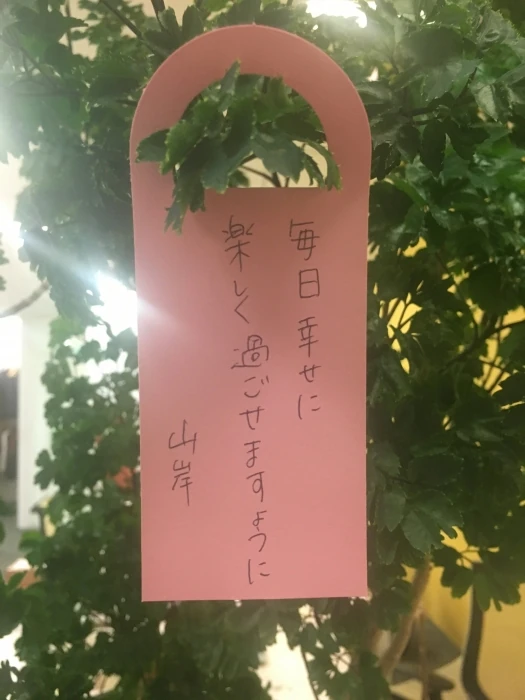 毎日幸せに
楽しく過ごせますように
山岸